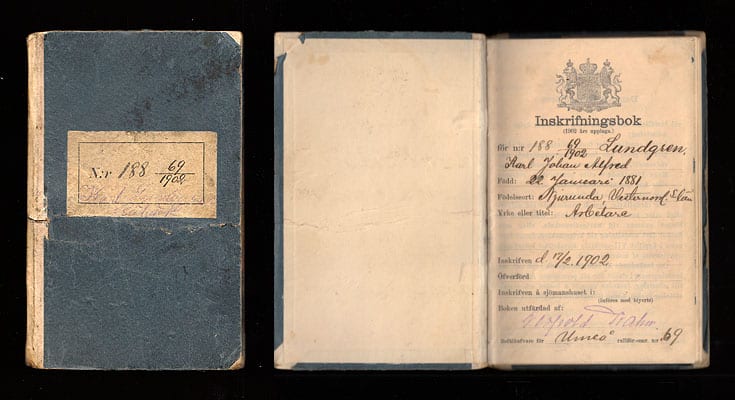 N:r 188 69/1902
Inskrifningsbok
(1902 års upplaga.)
för n:r 188 69/1902 Lundgren,
Karl Johan Alfred
Född: 22 Januari 1881
Födelseort: Njurunda, Vesternorrl. Län
Yrke eller titel: Arbetare
Inskrifven d. /2 1902
Öfverförd
Inskrifven å sjömanshuset i:
(Införes med blyerts)
Boken utfärdad af:
för Umeå rullför.-omr. n:r 69